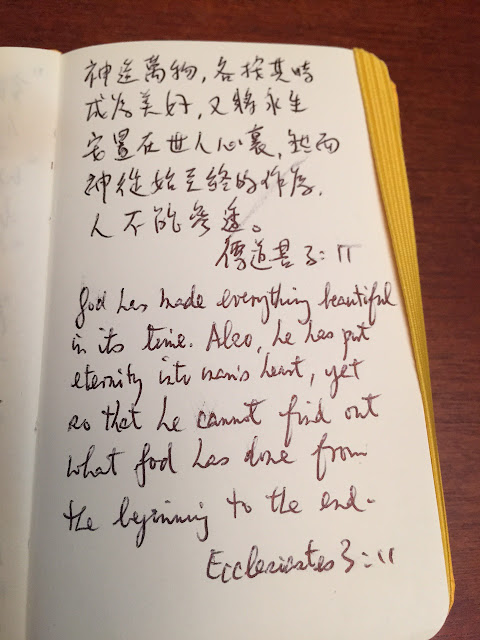 神造萬物,各按其時
成為美好,又將永生
安置在世人心裏,然而
神從始至終的作為,
人不能參透。
傳道書 3:11
God has made everything beautiful
in its time. Also, he has put
eternity into man's heart, yet
so that he cannot find out
what God has done from
the beginning to the end.
Ecclesiastes 3:11